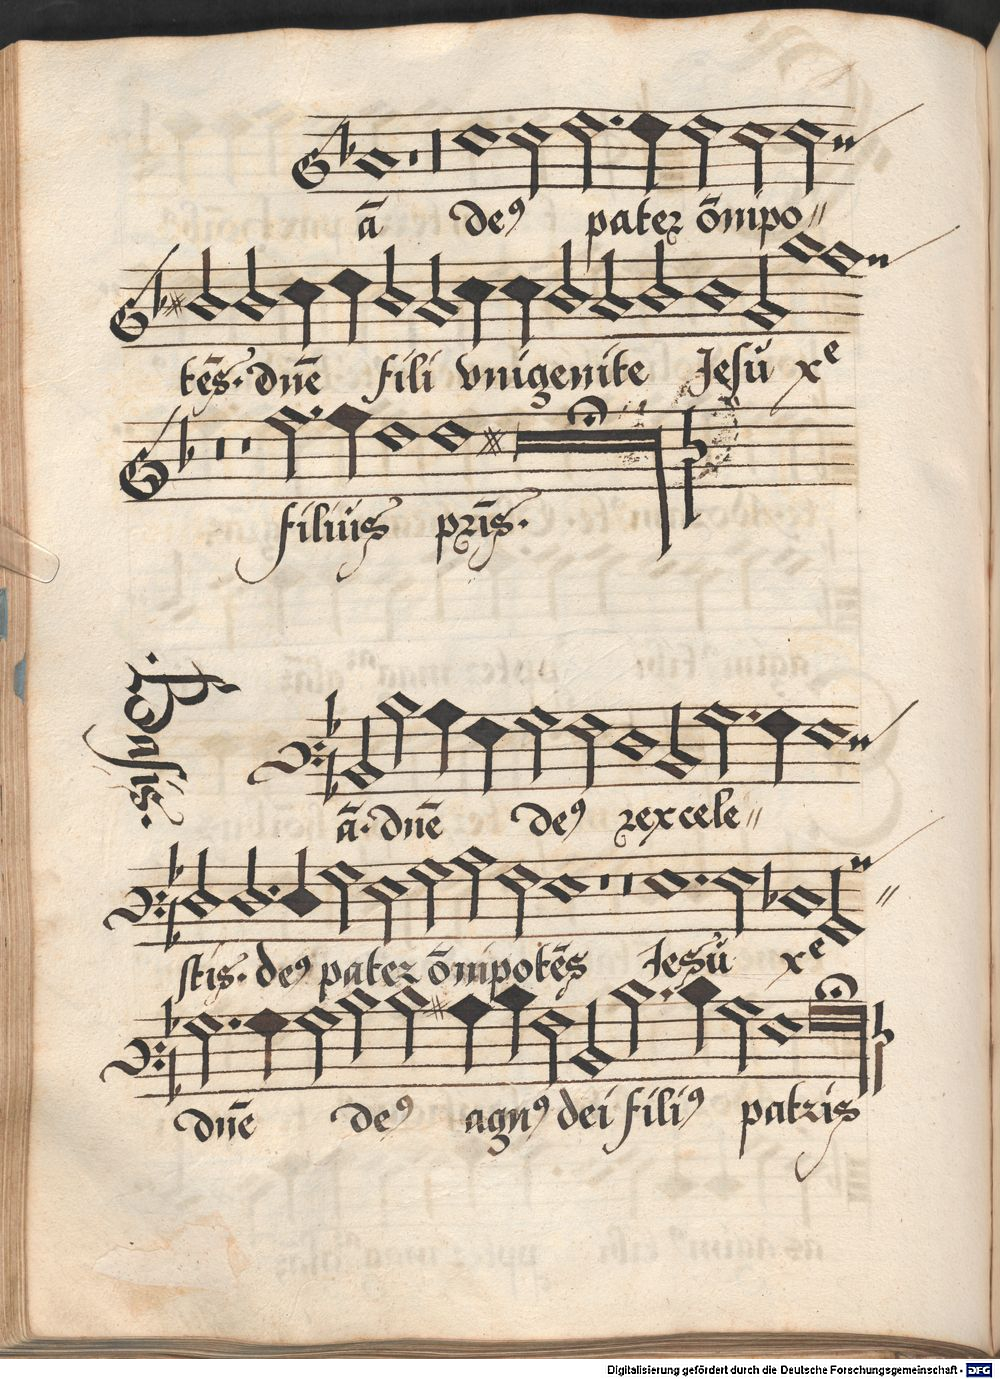 ā de⁹ pater ōmipo〃
tēs. dn̄e fili vnigenite Jesu xe
filius pr̄is.
Basis.
ā. dn̄e de⁹ rexcele〃
stis. de⁹ pater ōmipotēs Jesu xe
dn̄e de⁹ agn⁹ dei fili⁹ patris
Digitalisierung gefördert durch die Deutsche Forschungsgemeinschaft - DFG